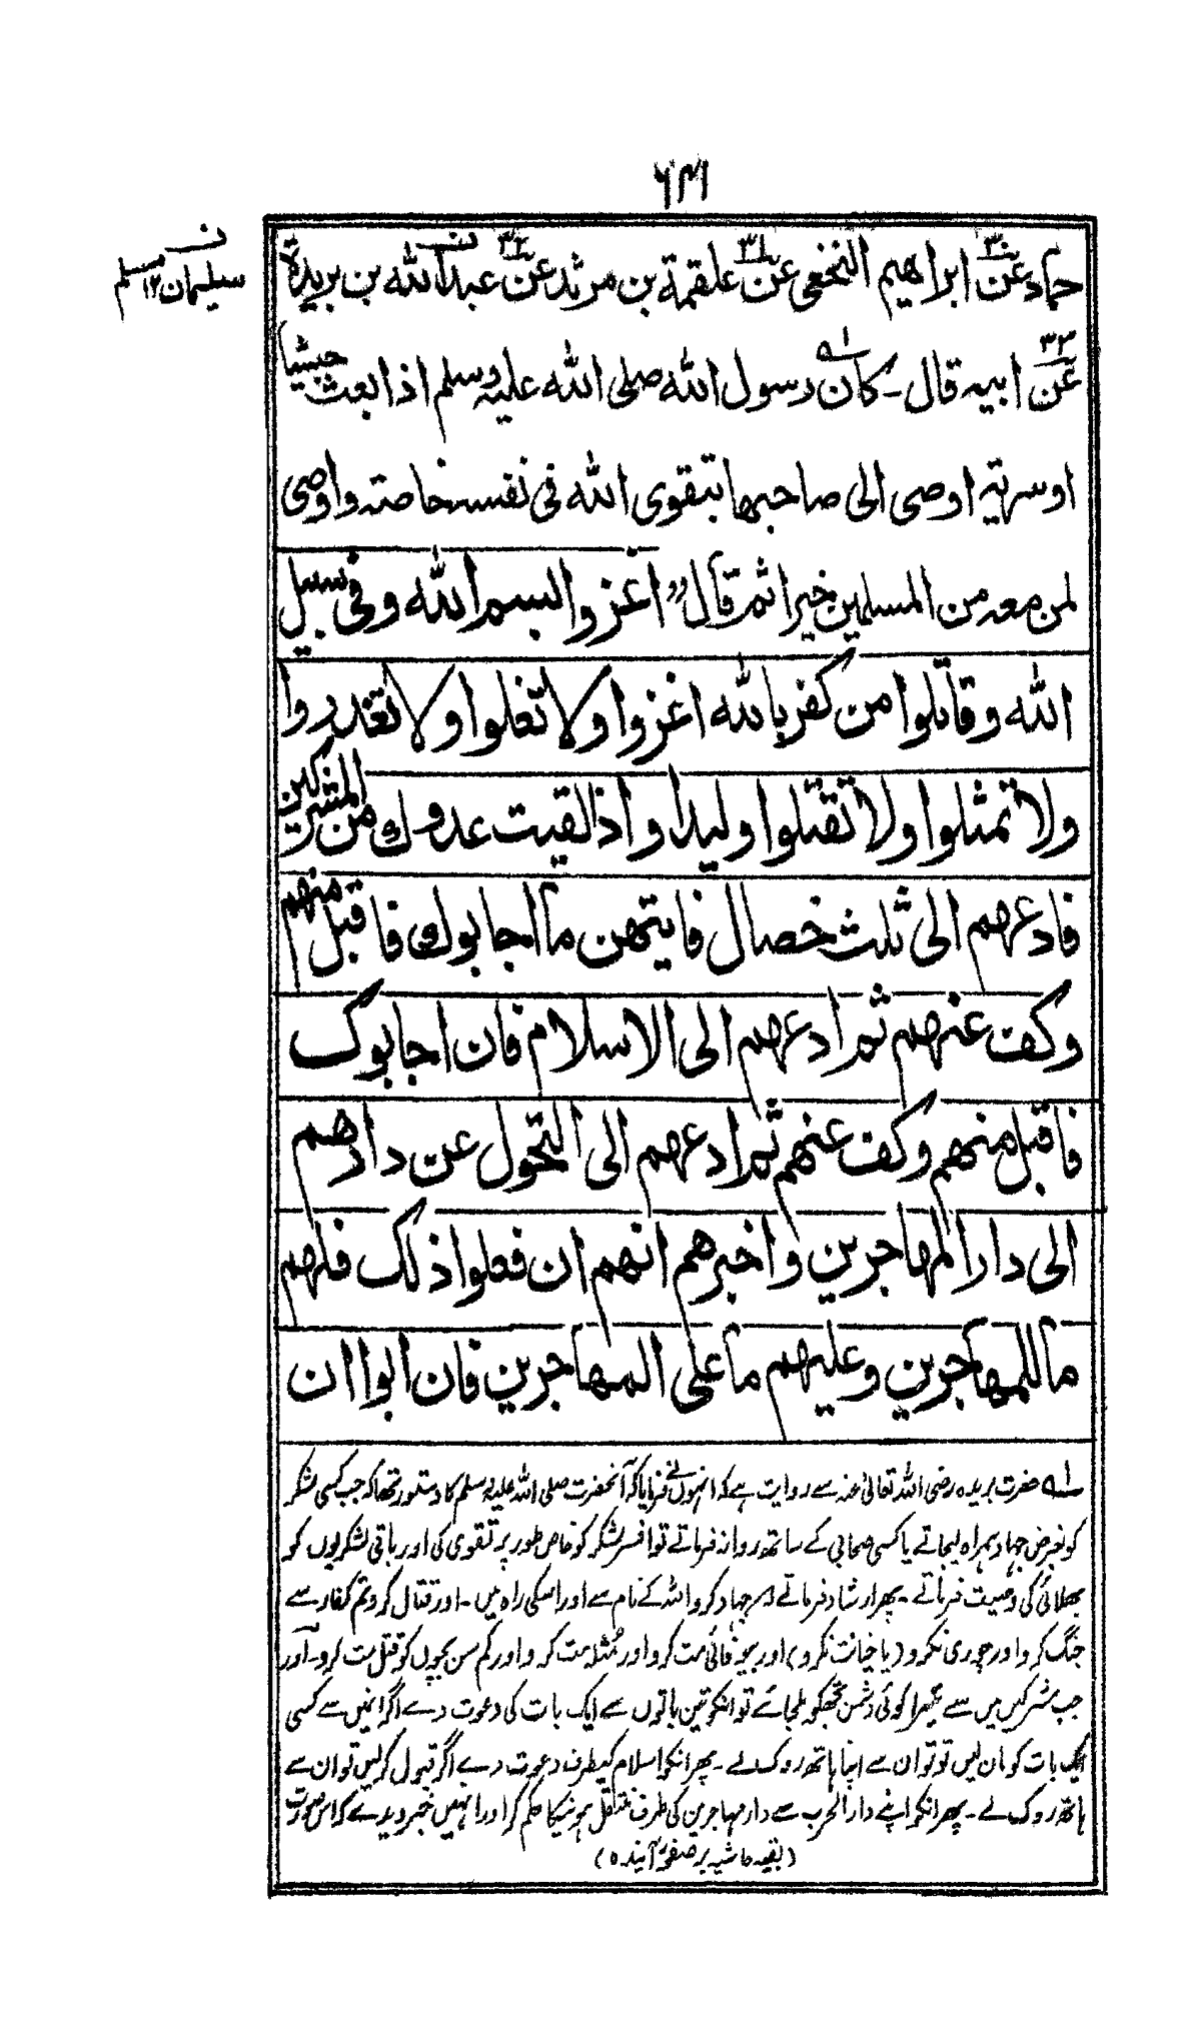 ۶۴۱
ن
سلیمان ۱۲ مسلم
حماد عن ابراهیم النخعی عن علقمة بن مرثد عن عبد الله بن بریدة
۳۰ ۳۱ ۳۲ ن
۳۳
عن ابیہ قال - کان رسول اللہ صلی اللہ علیہ وسلم اذا بعث جیشا
اوسریۃ اوصی الی صاحبھا بتقوی اللہ فی نفسہ خاصتہ واوصی
لمن معہ من المسلمین خیرا ثم قال " اغزوا بسم اللہ وفی سبیل
اللہ وقاتلوا من کفر باللہ اغزوا ولا تغلوا ولا تغدروا
ولا تمثلوا ولا تقتلوا ولیدا واذا لقیت عدوک من المشرکین
فادعھم الی ثلث خصال فایتھن ما اجابوک فاقبل منھم
وکف عنھم ثم ادعھم الی الاسلام فان اجابوک
فاقبل منھم وکف عنھم ثم ادعھم الی التحول عن دارھم
الی دار المھاجرین واخبرھم انھم ان فعلوا ذلک فلھم
ما للمھاجرین وعلیھم ما علی المھاجرین فان ابوا ان
لہ حضرت بریدہ رضی اللہ تعالیٰ عنہ سے روایت ہے کہ انہوں نے فرمایا کہ آنحضرت صلی اللہ علیہ وسلم کا دستور تھا کہ جب کسی لشکر
کو بغرض جہاد ہمراہ لیجاتے یا کسی صحابی کے ساتھ روانہ فرماتے تو افسر لشکر کو خاص طور پر تقوی کی اور باقی لشکریوں کو
بھلائی کی وصیت فرماتے - پھر ارشاد فرماتے جہاد کرو اللہ کے نام سے اور اسکی راہ میں - اور قتال کرو تم کفار سے
جنگ کرو اور چوری نکرو (یا خیانت نکرو) اور بیوفائی مت کرو اور مُثلہ مت کرو اور کم سن بچوں کو قتل مت کرو - اور
جب مشرکیں میں سے تیرا کوئی دشمن تجھکو ملجائے تو انکو تین باتوں سے ایک بات کی دعوت دے اگر انمیں سے کسی
ایک بات کو مان لیں تو تو ان سے اپنا ہاتھ روک لے - پھر انکو اسلام کیطرف دعوت دے اگر قبول کرلیں تو ان سے
ہاتھ روک لے - پھر انکو اپنے دار الحرب سے دار مہاجرین کی طرف منتقل ہونیکا حکم کر اور انہیں خبر دیدے کہ اس صورت
(بقیہ حاشیہ بر صفحہ آیندہ)